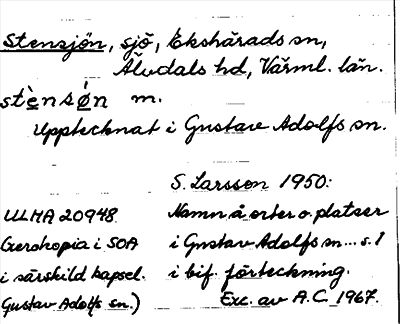 Stensjön, sjö, Ekshärads sn,
Älvdals hd, Värml. län.
stènsǿn m.
Upptecknat i Gustav Adolfs sn.
S. Larsson 1950:
ULMA 20948.
Namn å orter o. platser
Xerokopia i SOA
i Gustav Adolfs sn... s. 1
i särskild kapsel.
i bif. förteckning.
Gustav Adolfs sn.)
Exc. av A.C. 1967.